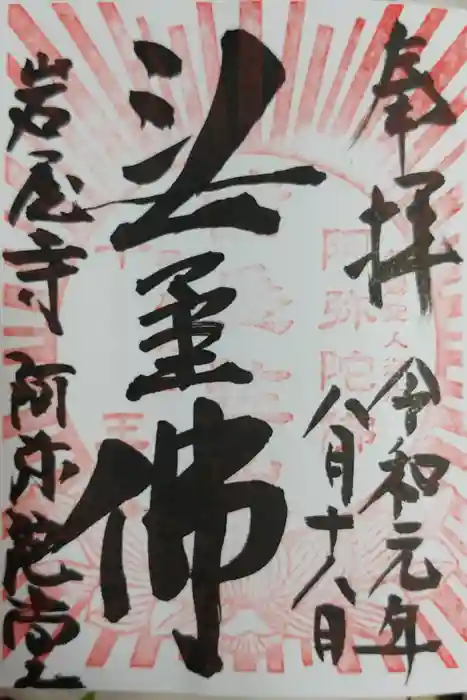 奉拝 令和元年
八月十八日
無量佛
岩屋寺 阿弥陀堂
阿弥陀